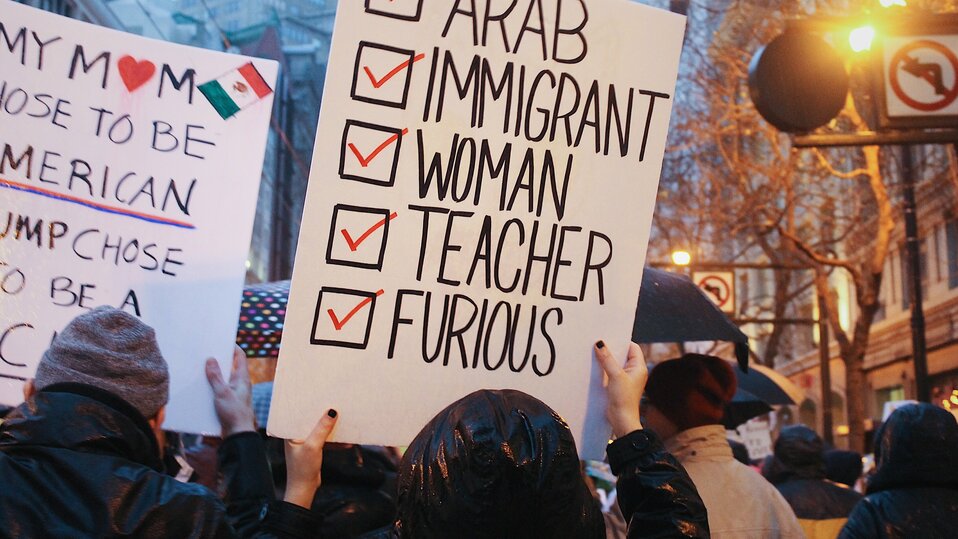 MY M❤M
HOSE TO BE
MERICAN
UMP CHOSE
TO BE A
ARAB
IMMIGRANT
WOMAN
TEACHER
FURIOUS